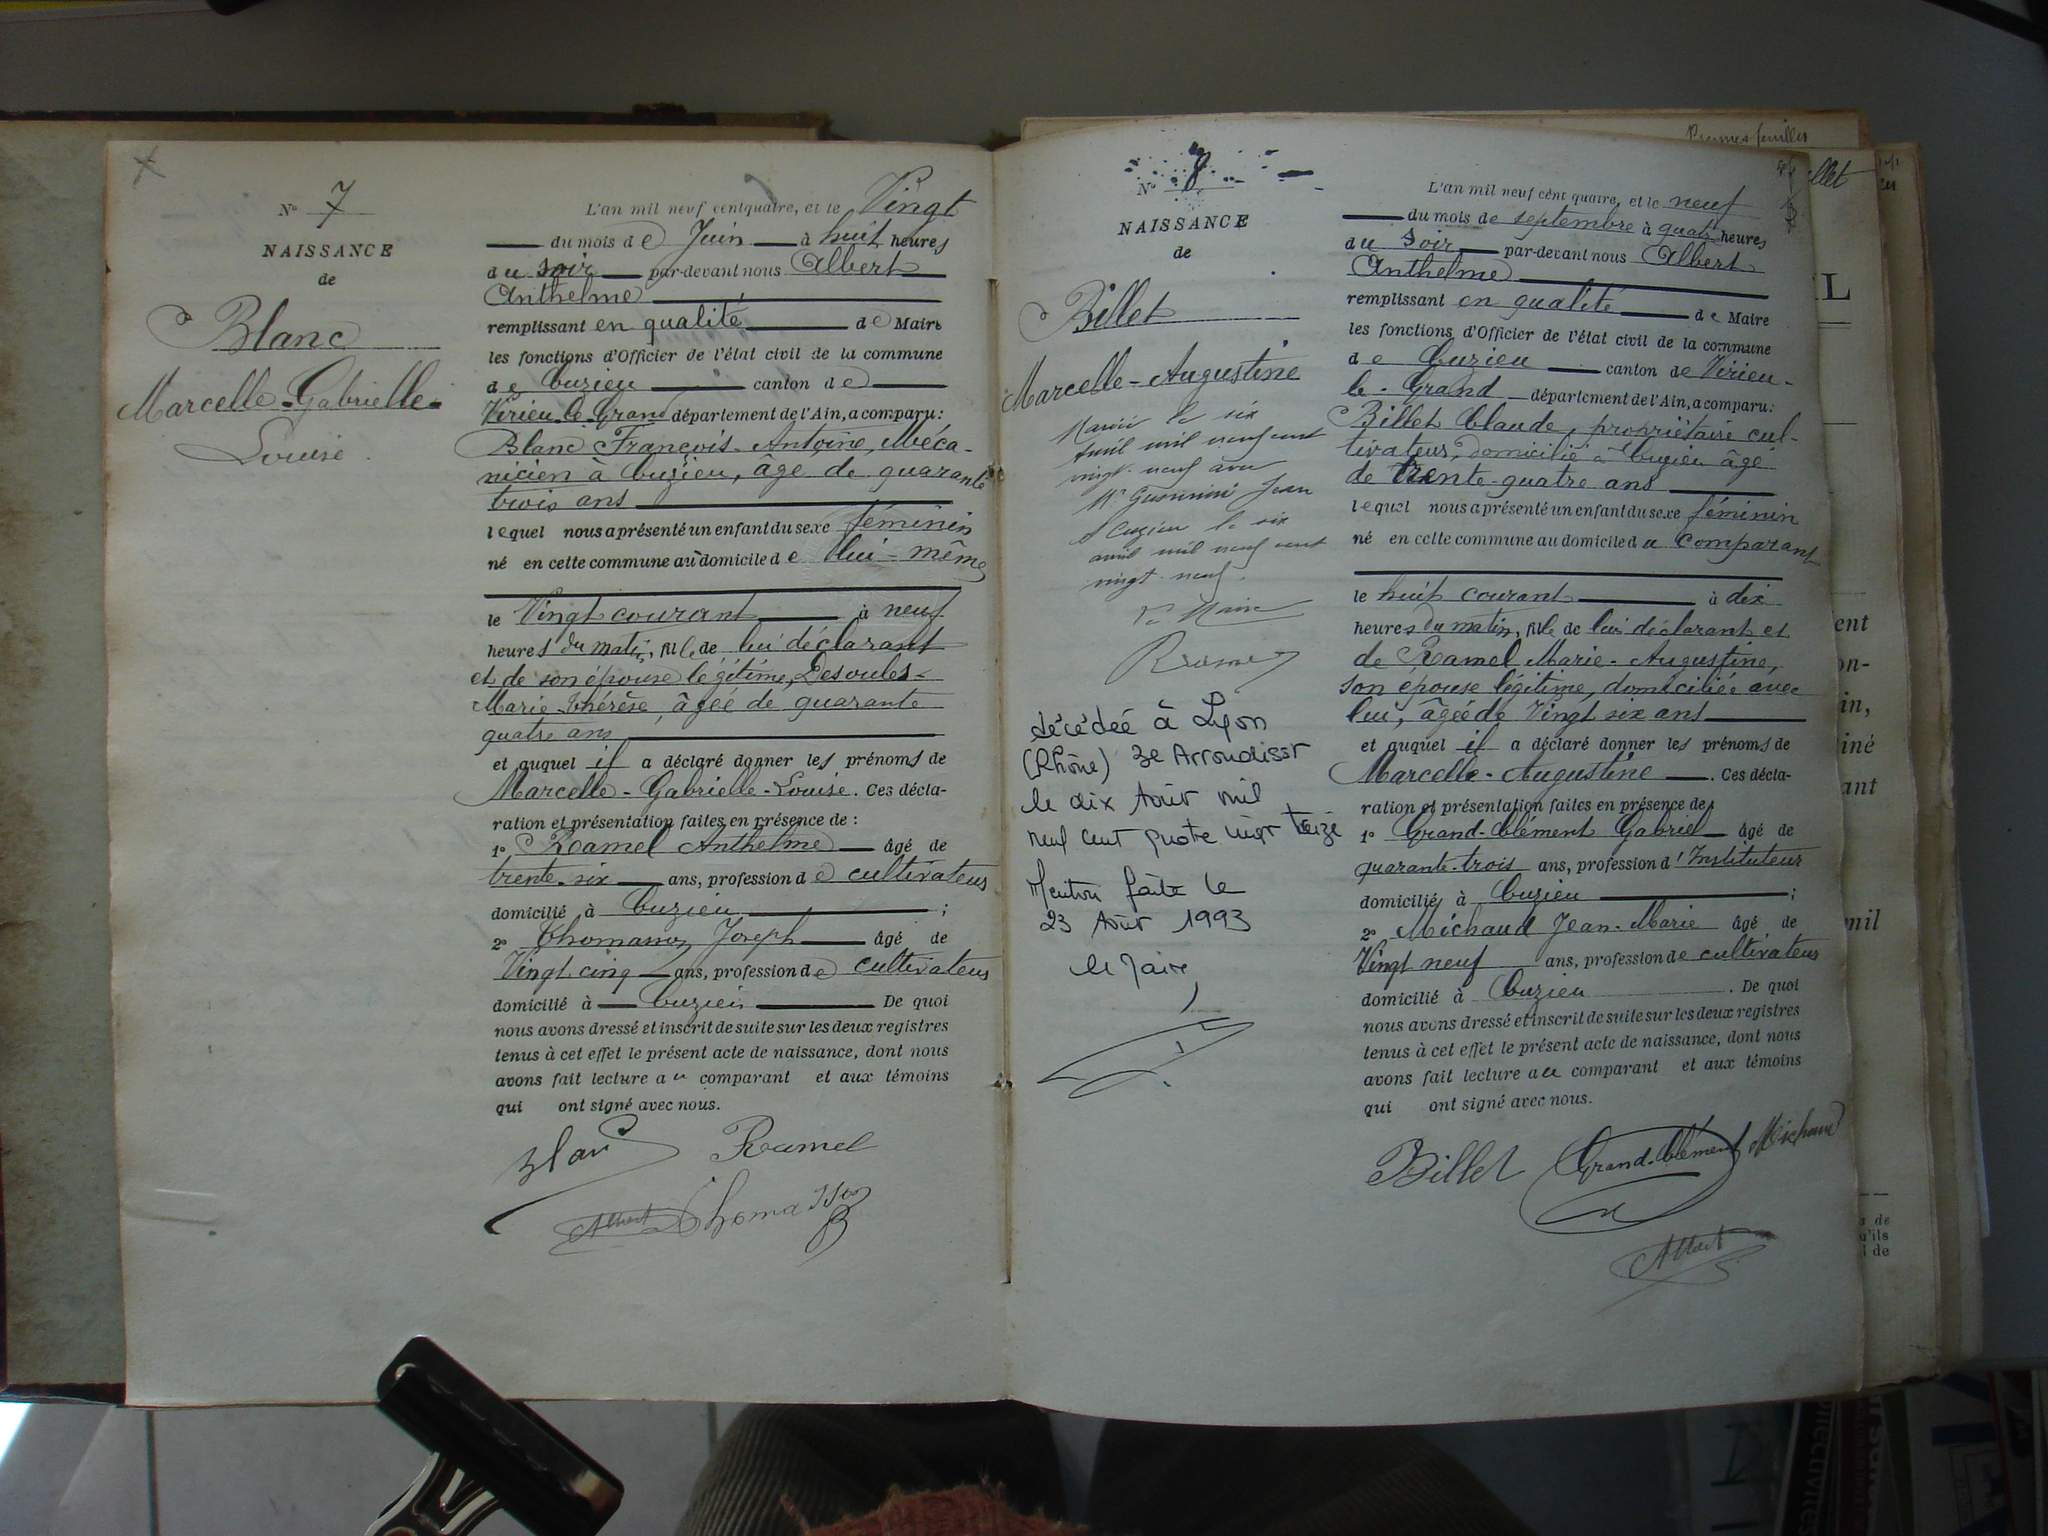 N° 7
NAISSANCE
de
Blanc
Marcelle-Gabrielle-
Louise
L'an mil neuf cent quatre, et le Vingt
du mois de Juin à huit heures
du soir par-devant nous Albert
Anthelme
remplissant en qualité de Maire
les fonctions d'Officier de l'état civil de la commune
de Cuzieu canton de
Virieu-le-Grand département de l'Ain, a comparu:
Blanc François-Antoine, Méca-
nicien à Cuzieu, âge de quarante
trois ans
lequel nous a présenté un enfant du sexe féminin
né en cette commune au domicile de lui-même
le Vingt courant à neuf
heures du matin, fille de lui déclarant
et de son épouse légitime, Desoules-
Marie-Thérèse, âgée de quarante
quatre ans
et auquel il a déclaré donner les prénoms de
Marcelle-Gabrielle-Louise. Ces décla-
ration et présentation faites en présence de :
1° Ramel Anthelme âgé de
trente-six ans, profession de cultivateur
domicilié à Cuzieu ;
2° Thomasson Joseph âgé de
Vingt cinq ans, profession de cultivateur
domicilié à Cuzieu De quoi
nous avons dressé et inscrit de suite sur les deux registres
tenus à cet effet le présent acte de naissance, dont nous
avons fait lecture au comparant et aux témoins
qui ont signé avec nous.
Blanc Ramel
Albert Thomasson
Billet
N° 8
NAISSANCE
de
Billet
Marcelle-Augustine
Mariée le six
Avril mil neuf cent
vingt-neuf avec
Mr Jean
à Cuzieu le six
avril mil neuf cent
vingt-neuf.
Le Maire
décédée à Lyon
(Rhône) 3e Arrondisst
le dix Août mil
neuf cent quatre vingt treize
Mention faite le
23 Août 1993
le Maire,
L'an mil neuf cent quatre, et le neuf
du mois de septembre à quatre heures
du soir par-devant nous Albert
Anthelme
remplissant en qualité de Maire
les fonctions d'Officier de l'état civil de la commune
de Cuzieu canton de Virieu-
le-Grand département de l'Ain, a comparu:
Billet Claude, propriétaire cul-
tivateur, domicilié à Cuzieu âgé
de trente-quatre ans
lequel nous a présenté un enfant du sexe féminin
né en cette commune au domicile du comparant
le huit courant à dix
heures du matin, fille de lui déclarant et
de Ramel Marie-Augustine,
son épouse légitime, domiciliée avec
lui, âgée de Vingt six ans
et auquel il a déclaré donner les prénoms de
Marcelle-Augustine. Ces décla-
ration et présentation faites en présence de
1° Grand-Clément Gabriel âgé de
quarante-trois ans, profession d'Instituteur
domicilié à Cuzieu ;
2° Michaud Jean-Marie âgé de
Vingt neuf ans, profession de cultivateur
domicilié à Cuzieu. De quoi
nous avons dressé et inscrit de suite sur les deux registres
tenus à cet effet le présent acte de naissance, dont nous
avons fait lecture au comparant et aux témoins
qui ont signé avec nous.
Billet Grand-Clément Michaud
Albert